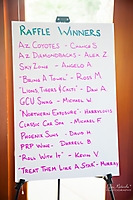 Raffle Winners
AZ Coyotes - Chance S
AZ Diamondbacks - Alex Z
Sky Zone - Angelo A
"Bring A Towel" - Ross M
"Lions, Tigers & Cacti" - Dan A
GCU Swag - Michael W
"Northern Exposure" - Harry
Classic Car Spa - Michael F
Phoenix Suns - David H
PRP Wine - Darrell B
"Roll With It" - Kevin V
"Treat Them Like A Star" - Murray